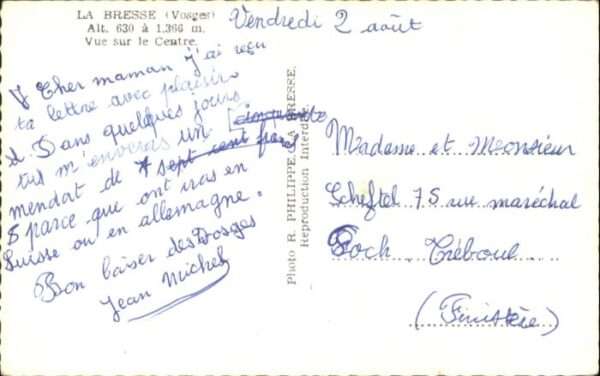 LA BRESSE (Vosges)
Alt. 630 à 1.366 m.
Vue sur le Centre.
Vendredi 2 août
Cher maman j'ai reçu
ta lettre avec plaisir.
Dans quelques jours
tu m'enveras un cinquante
mendat de sept cent francs
parce que ont iras en
Suisse ou en allemagne.
Bon baiser des Vosges
Jean Michel
Photo R. PHILIPPE, LA BRESSE.
Reproduction Interdite.
Madame et Monsieur
Scheftel 75 rue maréchal
Foch. Tréboul.
(Finistère)